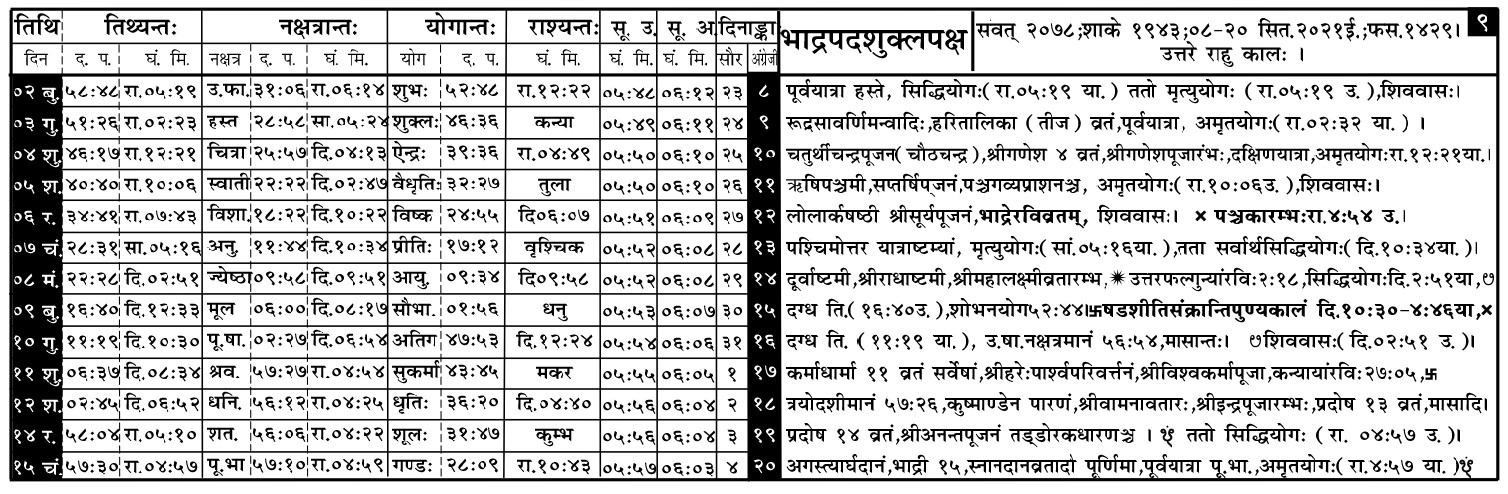 तिथि तिथ्यन्तः नक्षत्रान्तः योगान्तः राश्यन्तः सू. उ. सू. अ. दिनाङ्काः भाद्रपदशुक्लपक्ष संवत् २०७८;शाके १९४३;०८-२० सित.२०२१ई.;फस.१४२९। ९
दिन द. प. घं. मि. नक्षत्र द. प. घं. मि. योग द. प. घं. मि. घं. मि. घं. मि. सौर अंग्रेजी उत्तरे राहु कालः ।
०२ बु. ५८:४८ रा.०५:१९ उ.फा. ३१:०६ रा.०६:१४ शुभः ५२:४८ रा.१२:२२ ०५:४८ ०६:१२ २३ ८ पूर्वयात्रा हस्ते, सिद्धियोगः(रा.०५:१९ या.) ततो मृत्युयोगः (रा.०५:१९ उ.),शिववासः।
०३ गु. ५१:२६ रा.०२:२३ हस्त २८:५८ सा.०५:२४ शुक्लः ४६:३६ कन्या ०५:४९ ०६:११ २४ ९ रूद्रसावर्णिमन्वादिः,हरितालिका (तीज) व्रतं,पूर्वयात्रा, अमृतयोगः(रा.०२:३२ या.) ।
०४ शु. ४६:१७ रा.१२:२१ चित्रा २५:५७ दि.०४:१३ ऐन्द्रः ३९:३६ रा.०४:४९ ०५:५० ०६:१० २५ १० चतुर्थीचन्द्रपूजन(चौठचन्द्र),श्रीगणेश ४ व्रतं,श्रीगणेशपूजारंभः,दक्षिणयात्रा,अमृतयोगःरा.१२:२१या.।
०५ श. ४०:४० रा.१०:०६ स्वाती २२:२२ दि.०२:४७ वैधृतिः ३२:२७ तुला ०५:५० ०६:१० २६ ११ ऋषिपञ्चमी,सप्तर्षिपूजनं,पञ्चगव्यप्राशनञ्च, अमृतयोगः(रा.१०:०६उ.),शिववासः।
०६ र. ३४:४१ रा.०७:४३ विशा. १८:२२ दि.१०:२२ विष्क २४:५५ दि०६:०७ ०५:५१ ०६:०९ २७ १२ लोलार्कषष्ठी श्रीसूर्यपूजनं,भाद्रेरविव्रतम्, शिववासः। × पञ्चकारम्भःरा.४:५४ उ.।
०७ चं. २८:३१ सा.०५:१६ अनु. ११:४४ दि.१०:३४ प्रीतिः १७:१२ वृश्चिक ०५:५२ ०६:०८ २८ १३ पश्चिमोत्तर यात्राष्टम्यां, मृत्युयोगः(सां.०५:१६या.),तता सर्वार्थसिद्धियोगः(दि.१०:३४या.)।
०८ मं. २२:२८ दि.०२:५१ ज्येष्ठा ०९:५८ दि.०९:५१ आयु. ०९:३४ दि०९:५८ ०५:५२ ०६:०८ २९ १४ दूर्वाष्टमी,श्रीराधाष्टमी,श्रीमहालक्ष्मीव्रतारम्भ,✷उत्तरफल्गुन्यांरविः२:१८,सिद्धियोगःदि.२:५१या,७
०९ बु. १६:४० दि.१२:३३ मूल ०६:०० दि.०८:१७ सौभा. ०१:५६ धनु ०५:५३ ०६:०७ ३० १५ दग्ध ति.(१६:४०उ.),शोभनयोग५२:४४।卐षडशीतिसंक्रान्तिपुण्यकालं दि.१०:३०-४:४६या,×
१० गु. ११:१९ दि.१०:३० पू.षा. ०२:२७ दि.०६:५४ अतिग ४७:५३ दि.१२:२४ ०५:५४ ०६:०६ ३१ १६ दग्ध ति. (११:१९ या.), उ.षा.नक्षत्रमानं ५६:५४,मासान्तः। ७शिववासः(दि.०२:५१ उ.)।
११ शु. ०६:३७ दि.०८:३४ श्रव. ५७:२७ रा.०४:५४ सुकर्मा ४३:४५ मकर ०५:५५ ०६:०५ १ १७ कर्माधार्मा ११ व्रतं सर्वेषां,श्रीहरेःपार्श्वपरिवर्त्तनं,श्रीविश्वकर्मापूजा,कन्यायांरविः२७:०५,卐
१२ श. ०२:४५ दि.०६:५२ धनि. ५६:१२ रा.०४:२५ धृतिः ३६:२० दि.०४:४० ०५:५६ ०६:०४ २ १८ त्रयोदशीमानं ५७:२६,कुष्माण्डेन पारणं,श्रीवामनावतारः,श्रीइन्द्रपूजारम्भः,प्रदोष १३ व्रतं,मासादि।
१४ र. ५८:०४ रा.०५:१० शत. ५६:०६ रा.०४:२२ शूलः ३१:४७ कुम्भ ०५:५६ ०६:०४ ३ १९ प्रदोष १४ व्रतं,श्रीअनन्तपूजनं तड्डोरकधारणञ्च । ततो सिद्धियोगः (रा. ०४:५७ उ.)।
१५ चं. ५७:३० रा.०४:५७ पू.भा ५७:१० रा.०४:५९ गण्डः २८:०९ रा.१०:४३ ०५:५७ ०६:०३ ४ २० अगस्त्यार्घदानं,भाद्री १५,स्नानदानव्रतादौ पूर्णिमा,पूर्वयात्रा पू.भा.,अमृतयोगः(रा.४:५७ या.)